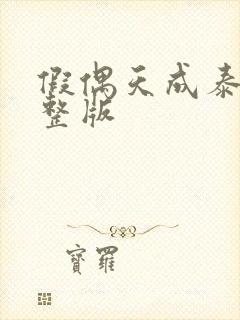 假偶天成泰
整版
寶羅